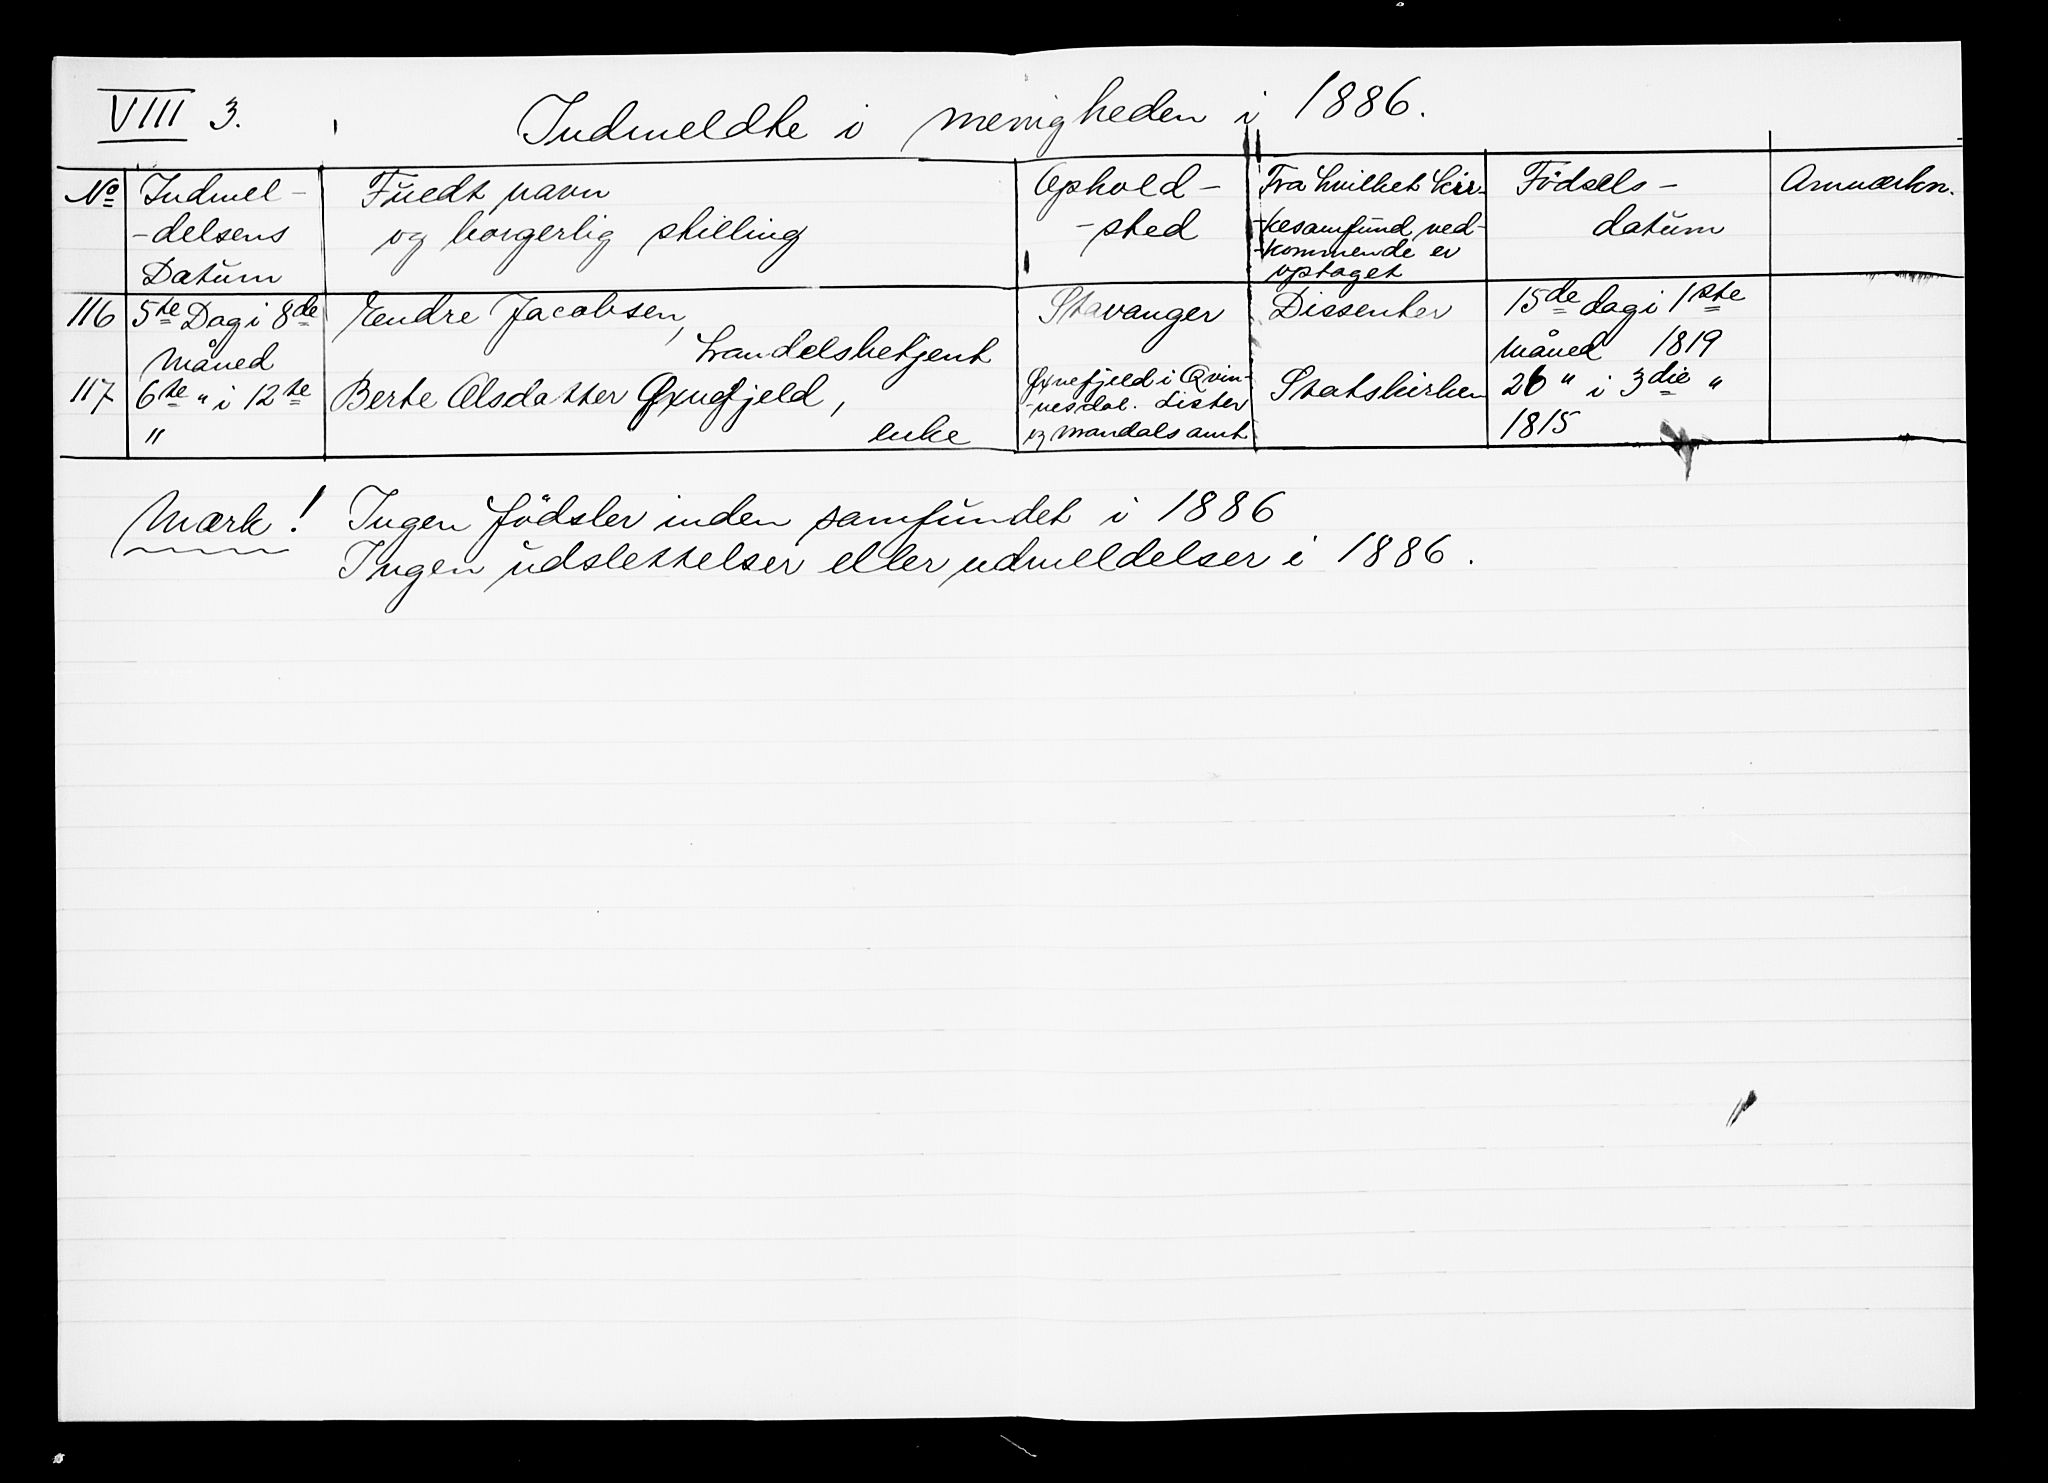 VIII 3. Indmeldte i menigheden i 1886.
No Indmel- Fuldt navn Ophold- Fra hvilket kir- Födsels- Anmærkn.
-delsens og borgerlig stilling -sted -kesamfund ved- datum
Datum -kommende er
optaget
116 5te Dag i 8de Endre Jacobsen, Stavanger Dissenter 15de dag i 1ste
Måned handelsbetjent måned 1819
117 6te " i 12te Berte Olsdatter Øxnefjeld, Øxnefjeld i Qvin- Statskirken 26 " i 3die "
" enke -nesdal. Lister 1815
og Mandals amt
Mærk! Ingen födsler inden samfundet i 1886
Ingen udslettelser eller udmeldelser i 1886.